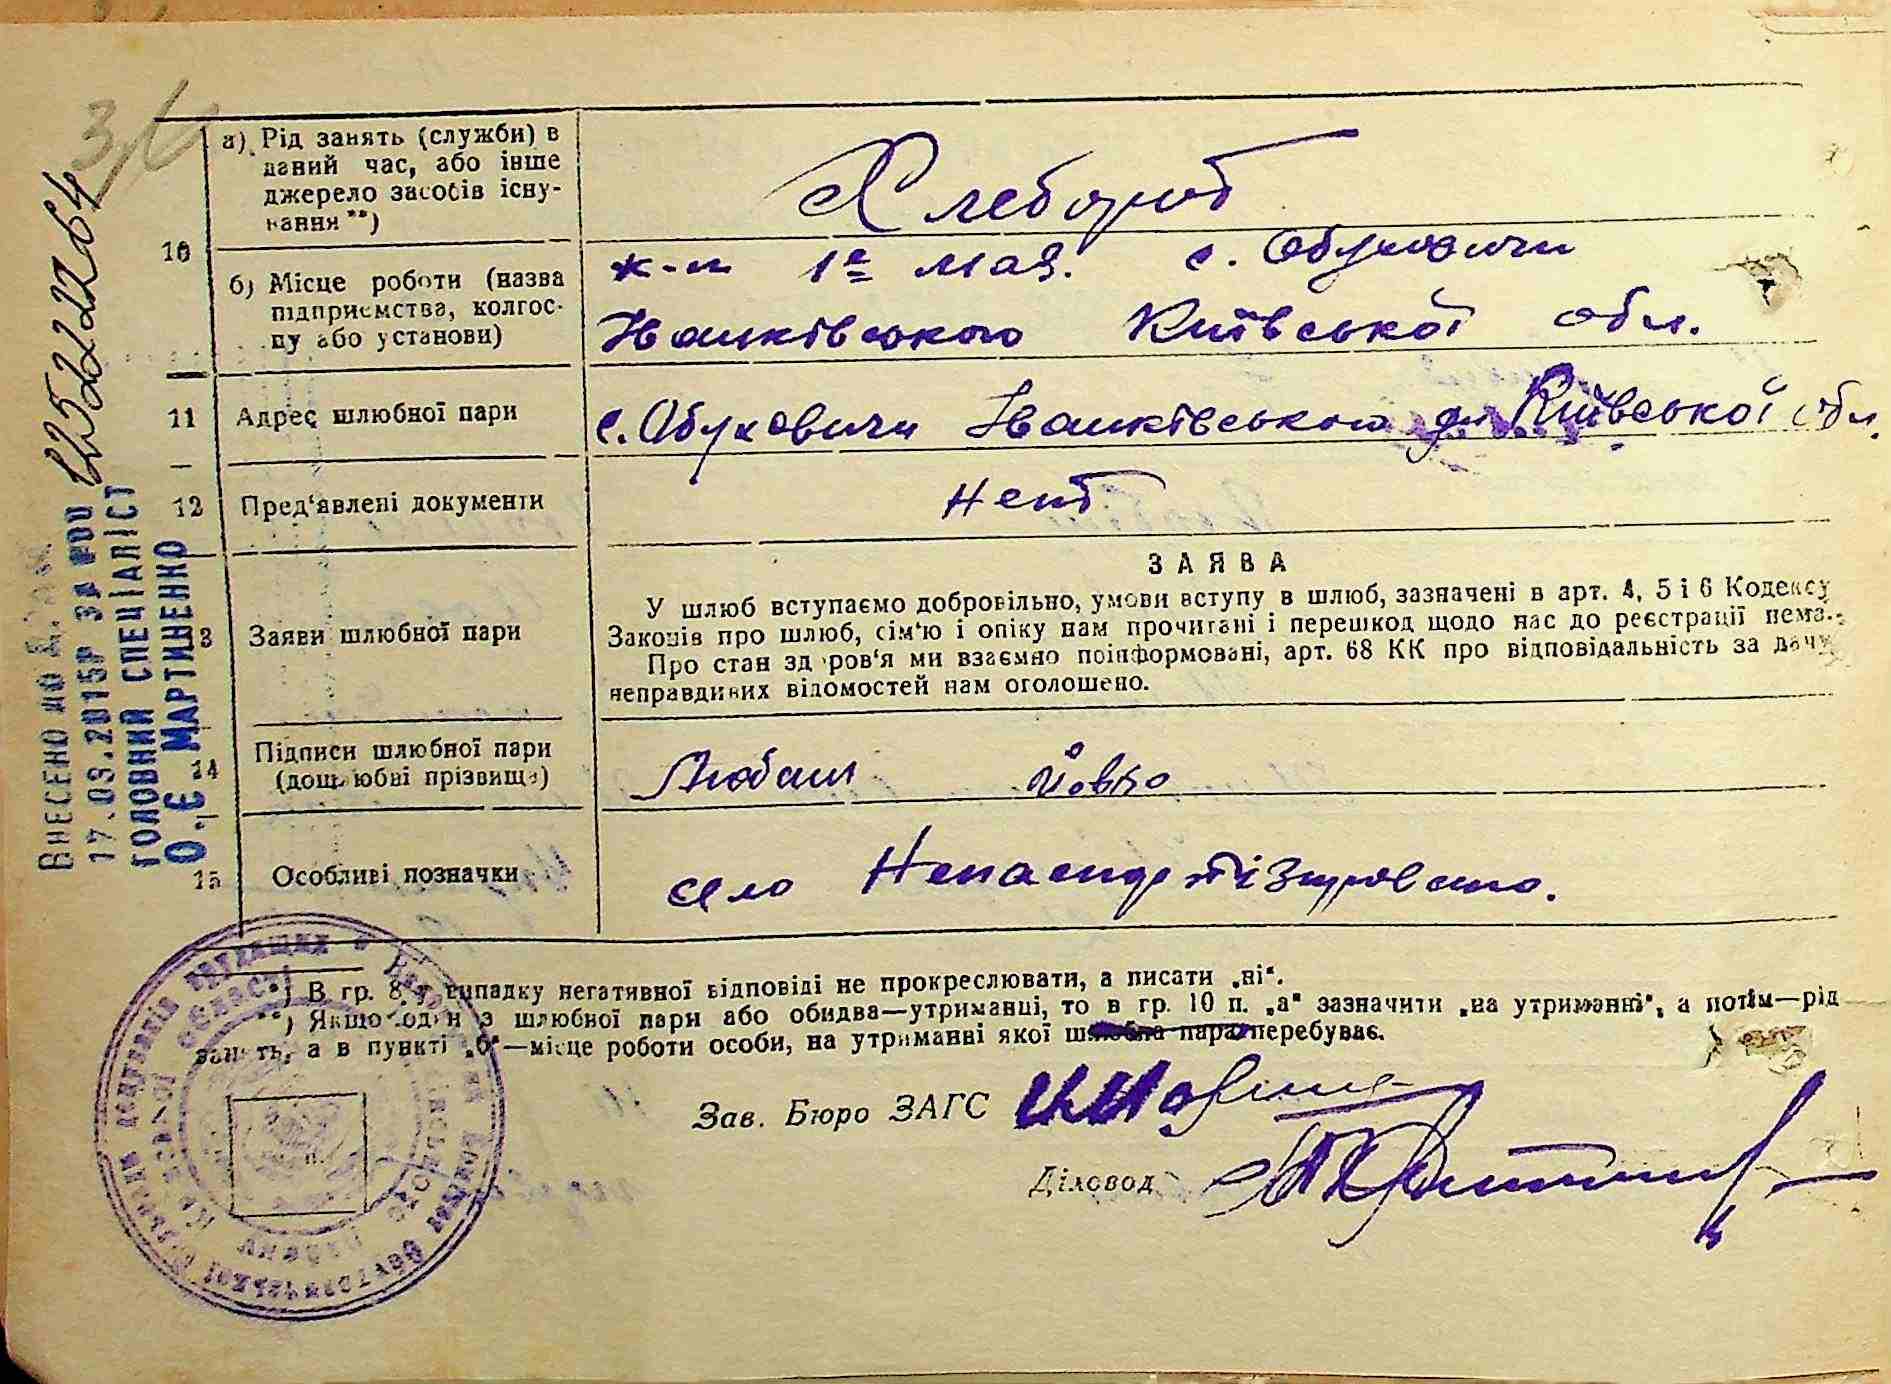 а) Рід занять (служби) в
даний час, або інше
джерело засобів існу-
вання**)
Хлебороб
10
б) Місце роботи (назва
підприємства, колгос-
пу або установи)
к-п 1е мая. с. Обуховичи
Іванківського Київської обл.
11
Адрес шлюбної пари
с. Обуховичи Іванківського Київської обл.
12
Пред'явлені документи
Нет
3
Заяви шлюбної пари
ЗАЯВА
У шлюб вступаємо добровільно, умови вступу в шлюб, зазначені в арт. 4, 5 і 6 Кодексу
Законів про шлюб, сім'ю і опіку нам прочитані і перешкод щодо нас до реєстрації нема.
Про стан здоров'я ми взаємно поінформовані, арт. 68 КК про відповідальність за дачу
неправдивих відомостей нам оголошено.
14
Підписи шлюбної пари
(дошлюбні прізвища)
Любаш Йовко
15
Особливі позначки
село Непаспортізировано.
*) В гр. 8, у випадку негативної відповіді не прокреслювати, а писати „ні“.
**) Якщо один з шлюбної пари або обидва—утриманці, то в гр. 10 п. „а“ зазначити „на утриманні“, а потім—рід
занять, а в пункті „б“—місце роботи особи, на утриманні якої шлюбна пара перебуває.
Зав. Бюро ЗАГС
Діловод
ВНЕСЕНО ДО
17.03.2015Р ЗА
ГОЛОВНИЙ СПЕЦІАЛІСТ
О.Є МАРТИНЕНКО